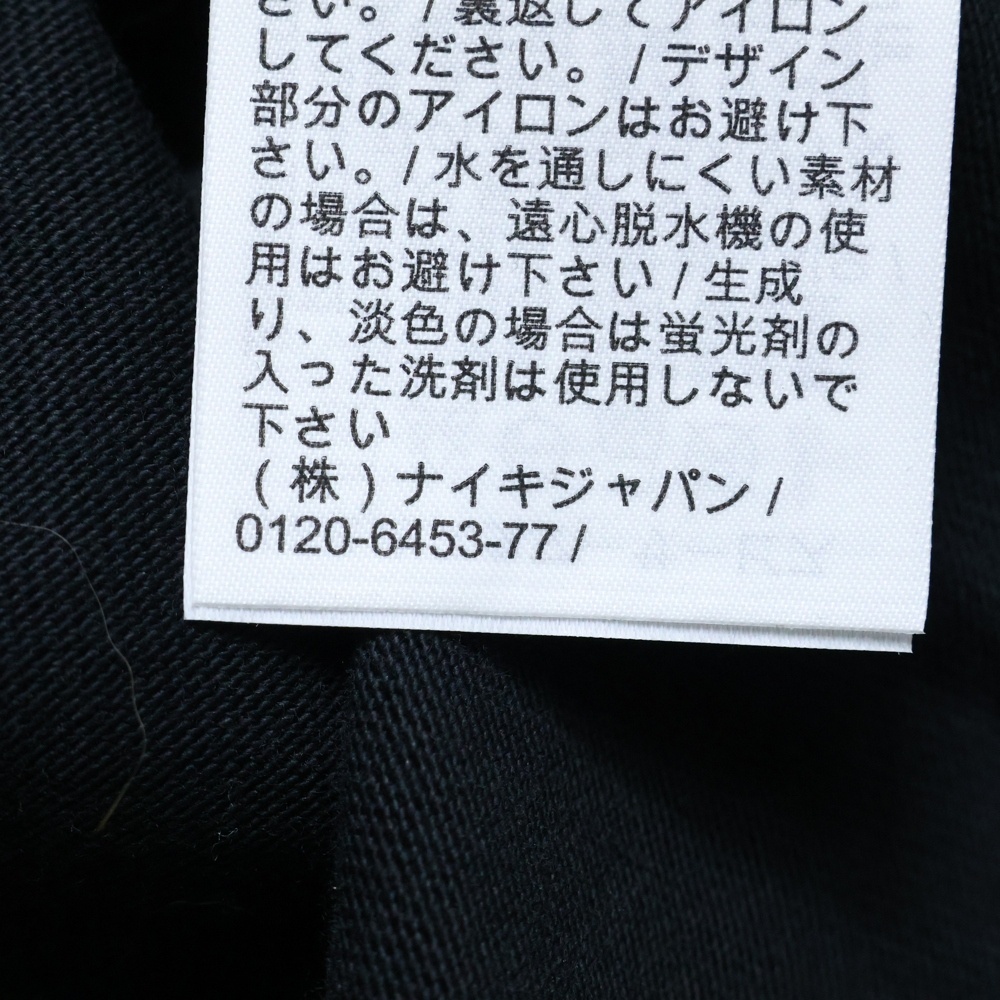 さい。 / 裏返してアイロン
してください。 / デザイン
部分のアイロンはお避け下
さい。/ 水を通しにくい素材
の場合は、遠心脱水機の使
用はお避け下さい / 生成
り、淡色の場合は蛍光剤の
入った洗剤は使用しないで
下さい
( 株 ) ナイキジャパン /
0120-6453-77 /